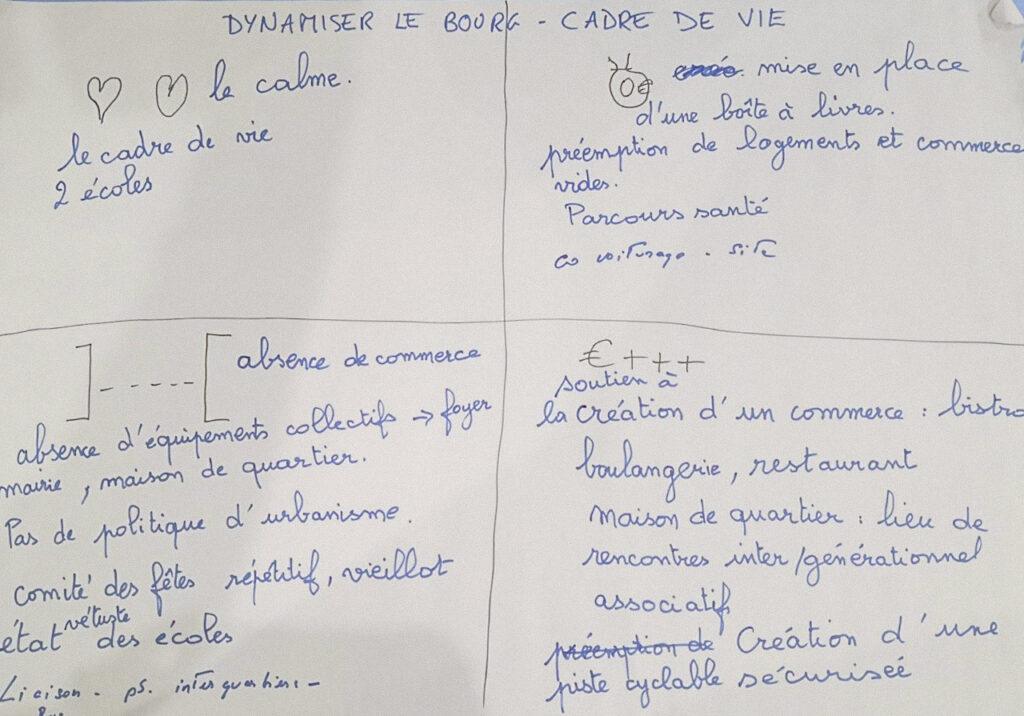 DYNAMISER LE BOURG - CADRE DE VIE
le calme.
le cadre de vie
2 écoles
mise en place
d'une boîte à livres.
préemption de logements et commerce
vides.
Parcours santé
co voiturage . site
] ----- [ absence de commerce
absence d'équipements collectifs → foyer
mairie, maison de quartier.
Pas de politique d'urbanisme.
comité des fêtes répétitif, vieillot
état vétuste des écoles
Liaison - ps. inter quartiers -
€ + + +
soutien à
la création d'un commerce : bistro
boulangerie, restaurant
Maison de quartier : lieu de
rencontres inter/générationnel
associatif
préemption de Création d'une
piste cyclable sécuriseé